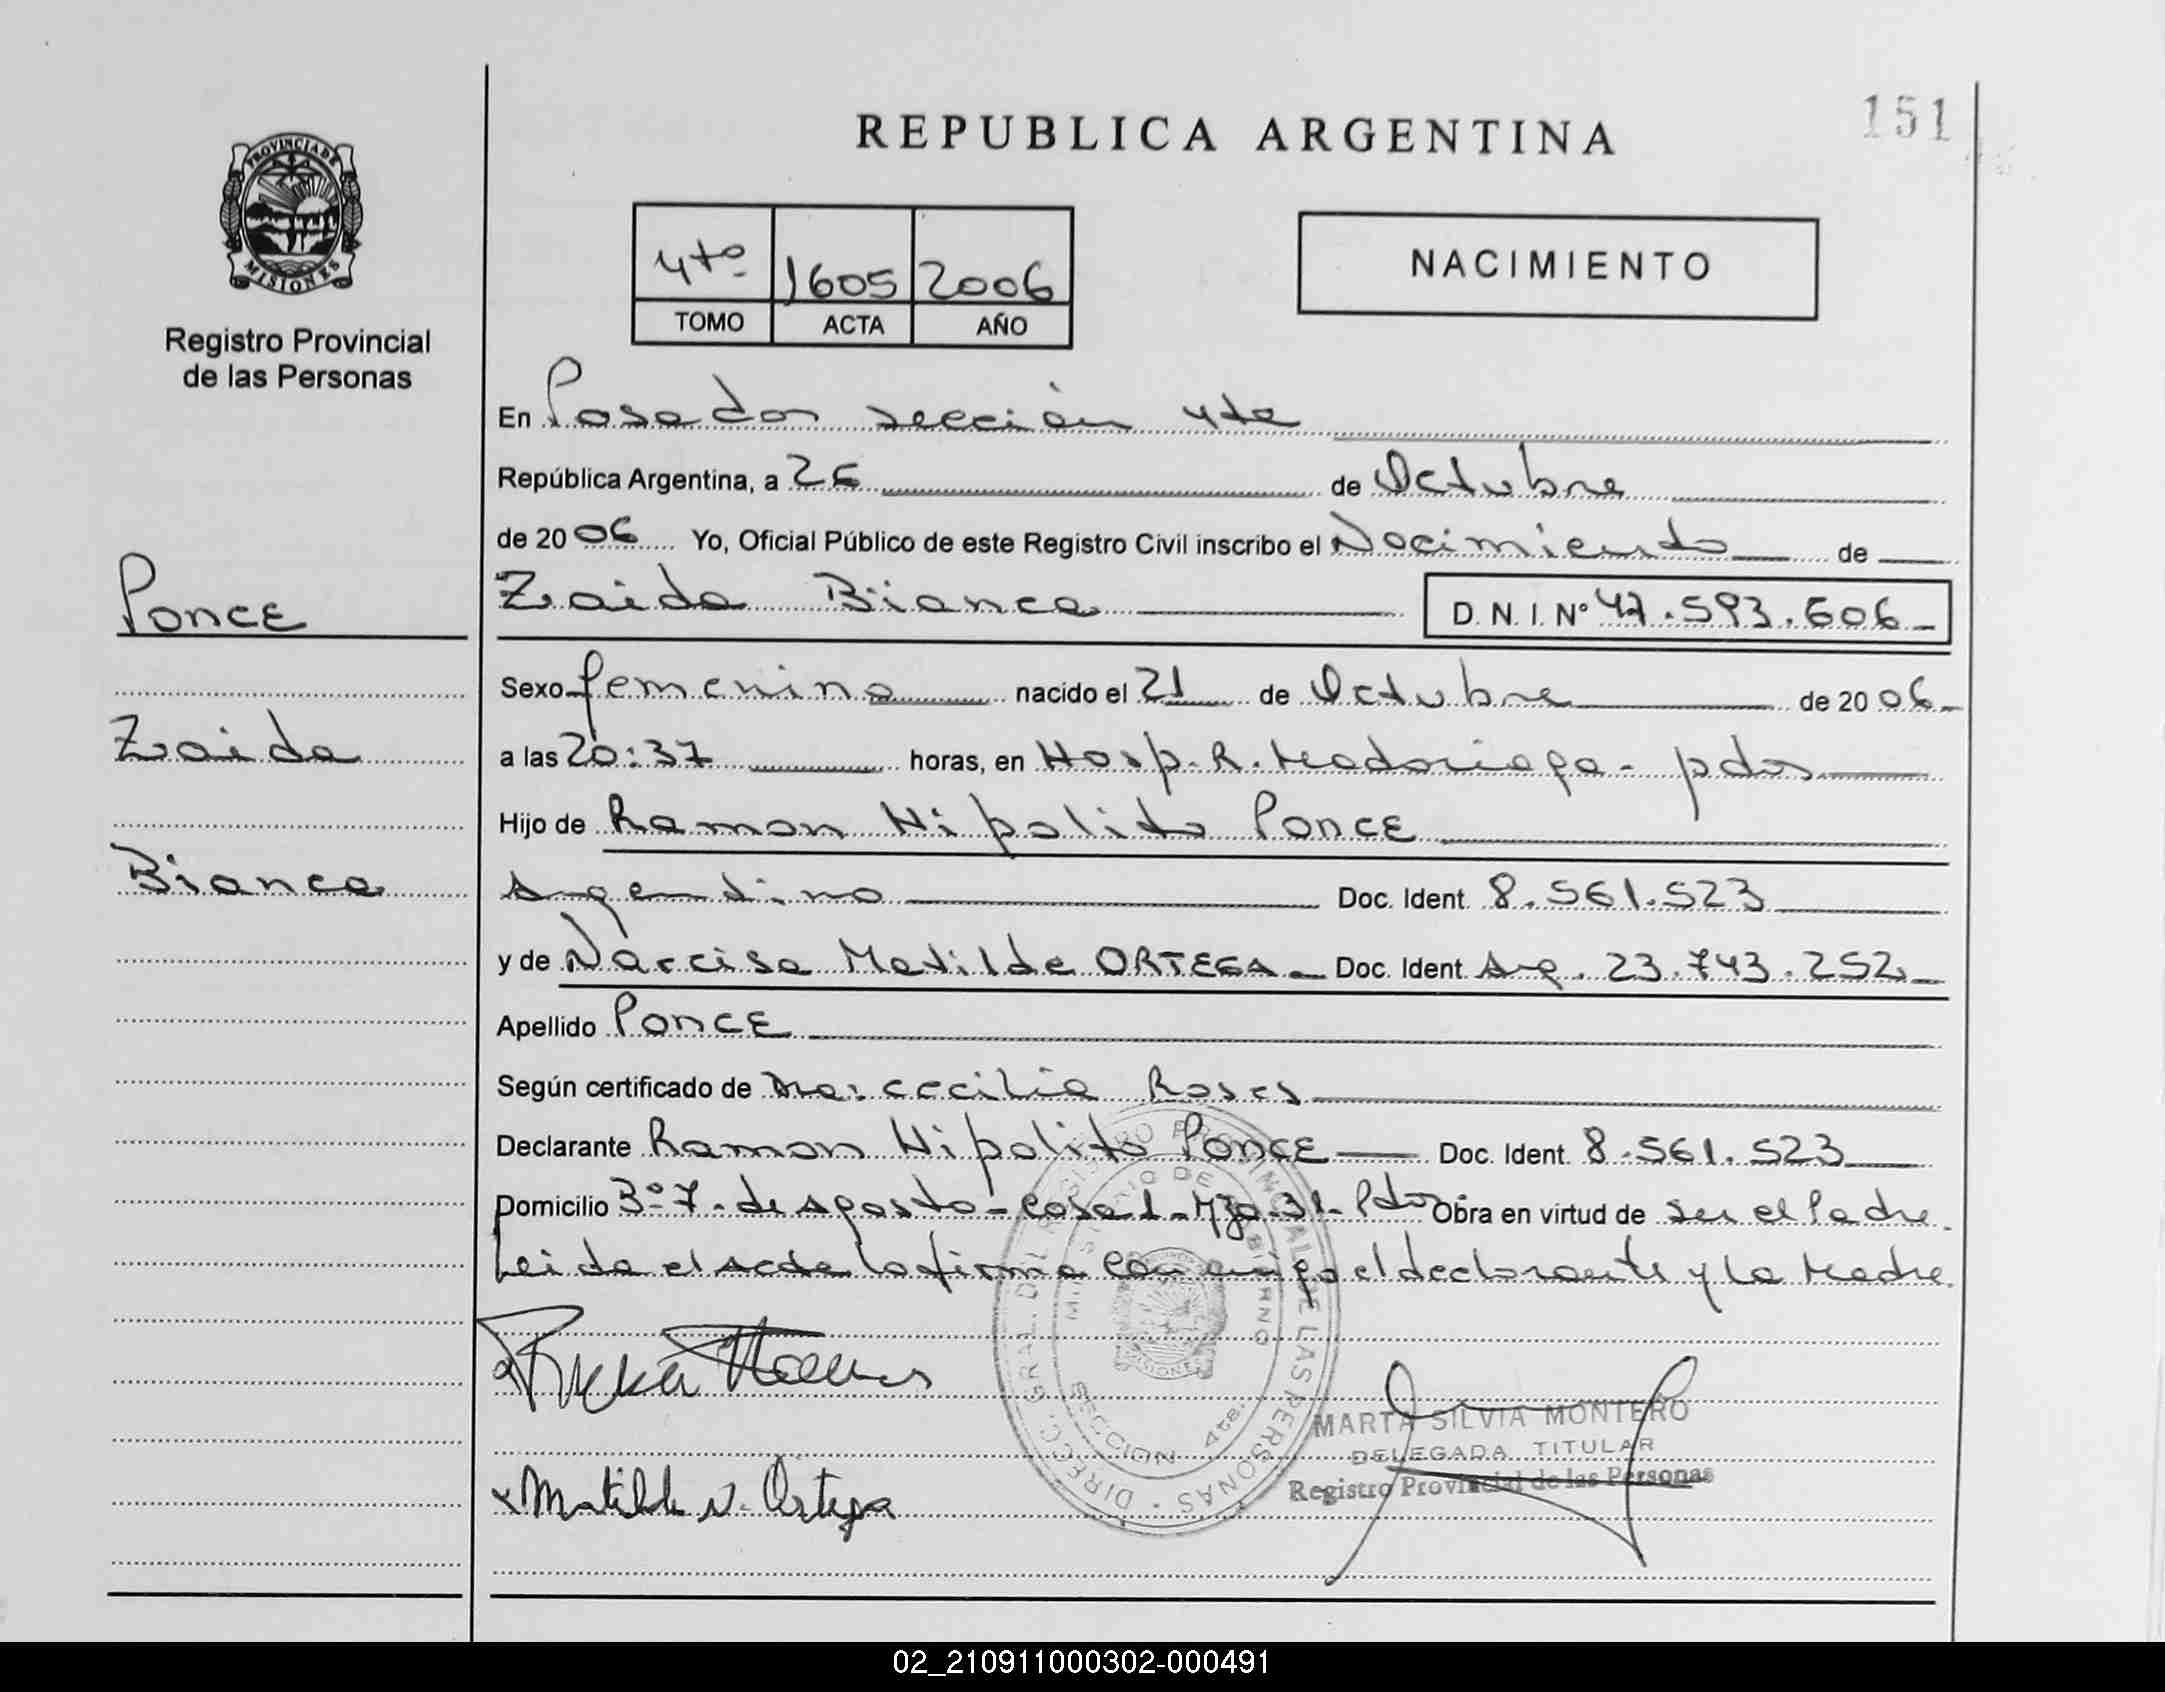 151
REPUBLICA ARGENTINA
PROVINCIA DE
MISIONES
Registro Provincial
de las Personas
4to 1605 2006
TOMO ACTA AÑO
NACIMIENTO
En Posadas sección 4ta
República Argentina, a 26 de Octubre
de 2006 Yo, Oficial Público de este Registro Civil inscribo el Nacimiento de
Ponce
Zaida Bianca D. N. I. N° 47.593.606
Sexo femenino nacido el 21 de Octubre de 2006
Zaida
a las 20:37 horas, en Hosp. R. Madariaga - pdas
Hijo de Ramon Hipolito PONCE
Bianca
Argentino Doc. Ident. 8.561.523
y de Narcisa Matilde ORTEGA Doc. Ident. Arg. 23.743.252
Apellido PONCE
Según certificado de Cecilia Roses
Declarante Ramon Hipolito PONCE Doc. Ident. 8.561.523
Domicilio B° 7 de Agosto - Casa 1 - Mza. 31 - Pdas Obra en virtud de ser el Padre.
Leida el acta la firma conmigo el declarante y la Madre.
DIRECC. GRAL. DEL REGISTRO PROVINCIAL DE LAS PERSONAS
MINISTERIO DE GOBIERNO
SECCION 4ta.
MARTA SILVIA MONTERO
DELEGADA TITULAR
Registro Provincial de las Personas
x Matilde N. Ortega
02_210911000302-000491